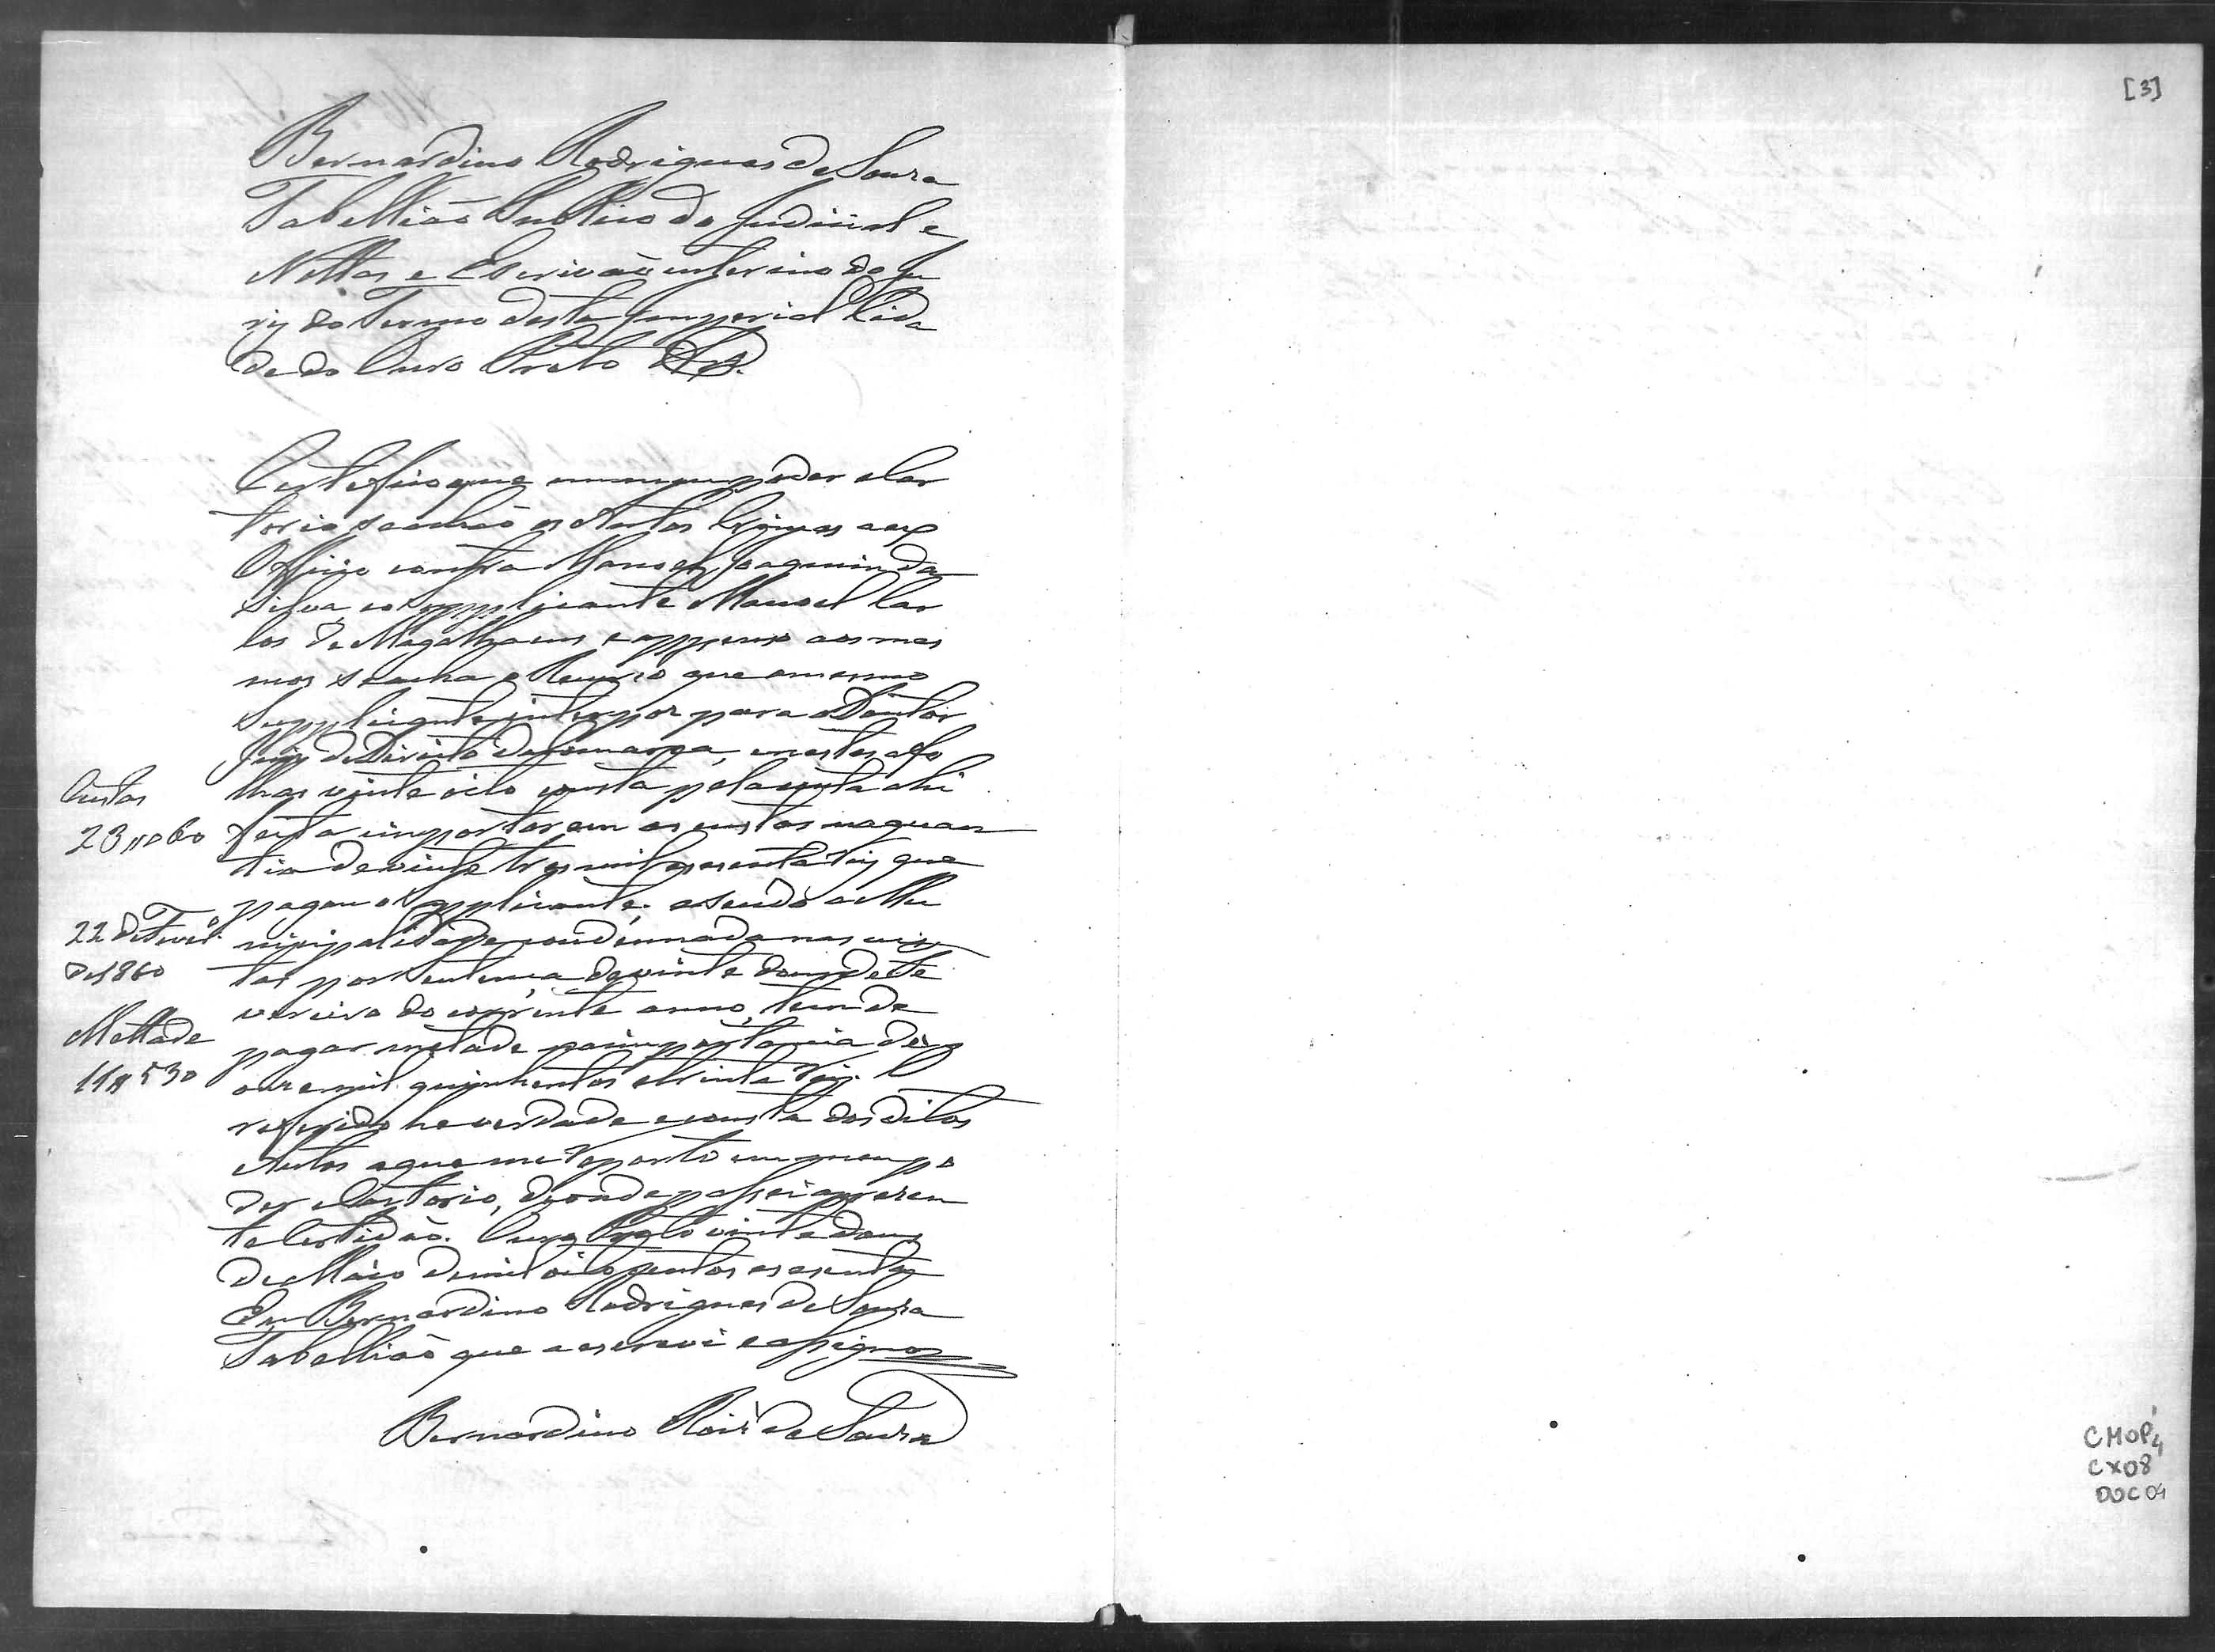 Bernardino Rodrigues de Souza
Tabellião Publico do Judicial e
Nottas e Escrivão interino do Ju
ry do Termo desta Imperial Cida
de do Ouro Preto
Certefico que em meu poder e Car
torio se achão os Autos Crimes a ex
Officio contra Manoel Joaquim da
Silva e o Supplicante Manoel Car
los de Magalhaens e appenso aos mes
mos se acha o Recurso que o mesmo
Supplicante interpos para o Doutor
Juiz de Direito da Comarca, e nestes a fo
lhas vinte oito consta pela conta ahi
feita importarem as custas na quan
tia de vinte tres mil e secenta reis que
pagou o Supplicante; e sendo a Mu
nicipalidade condemnada nas cus
tas por Sentença de vinte dous de Fe
vereiro do corrente anno, tem de
pagar metade na importancia de
onze mil quinhentos e trinta reis. O
referido he verdade e consta dos ditos
Autos a que me reporto em meu po
der e Cartorio, de onde passei a prezen
te Certidão. Ouro Preto vinte dous
de Maio de mil oito centos e secenta
Eu Bernardino Rodrigues de Souza
Tabellião que a escrevi e assigno
Bernardino Roiz de Souza
Custas
23#060
22 de Fever.o
de 1860
Mettade
11#530
[3]
CMOP
CX08
DOC 04